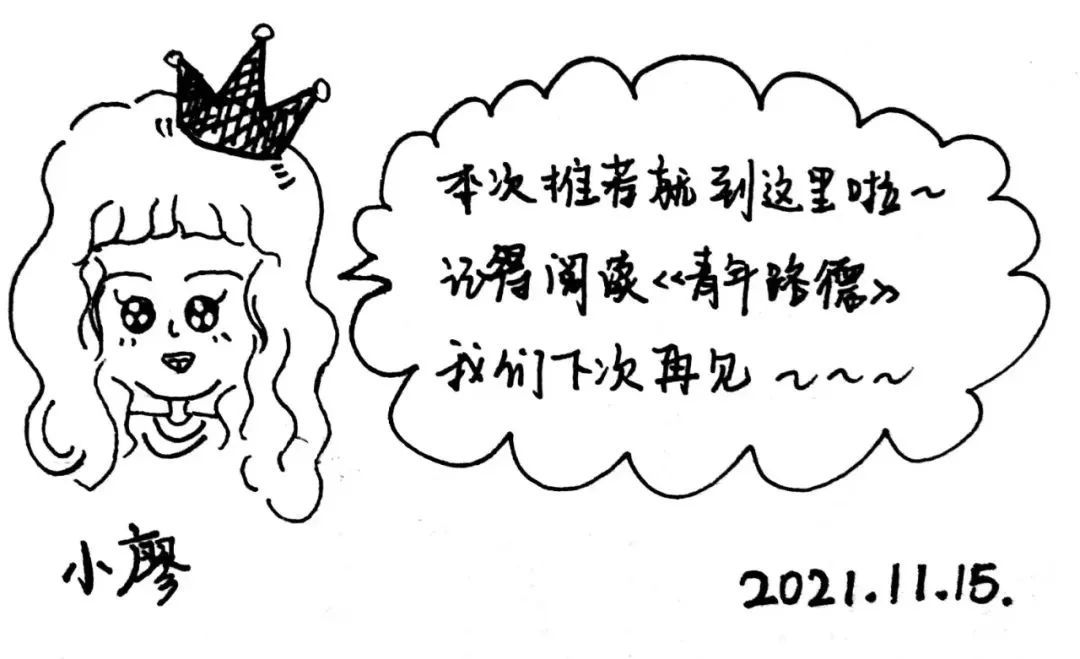 本次推荐就到这里啦~
记得阅读《青年路德》
我们下次再见~~~
小廖
2021.11.15.